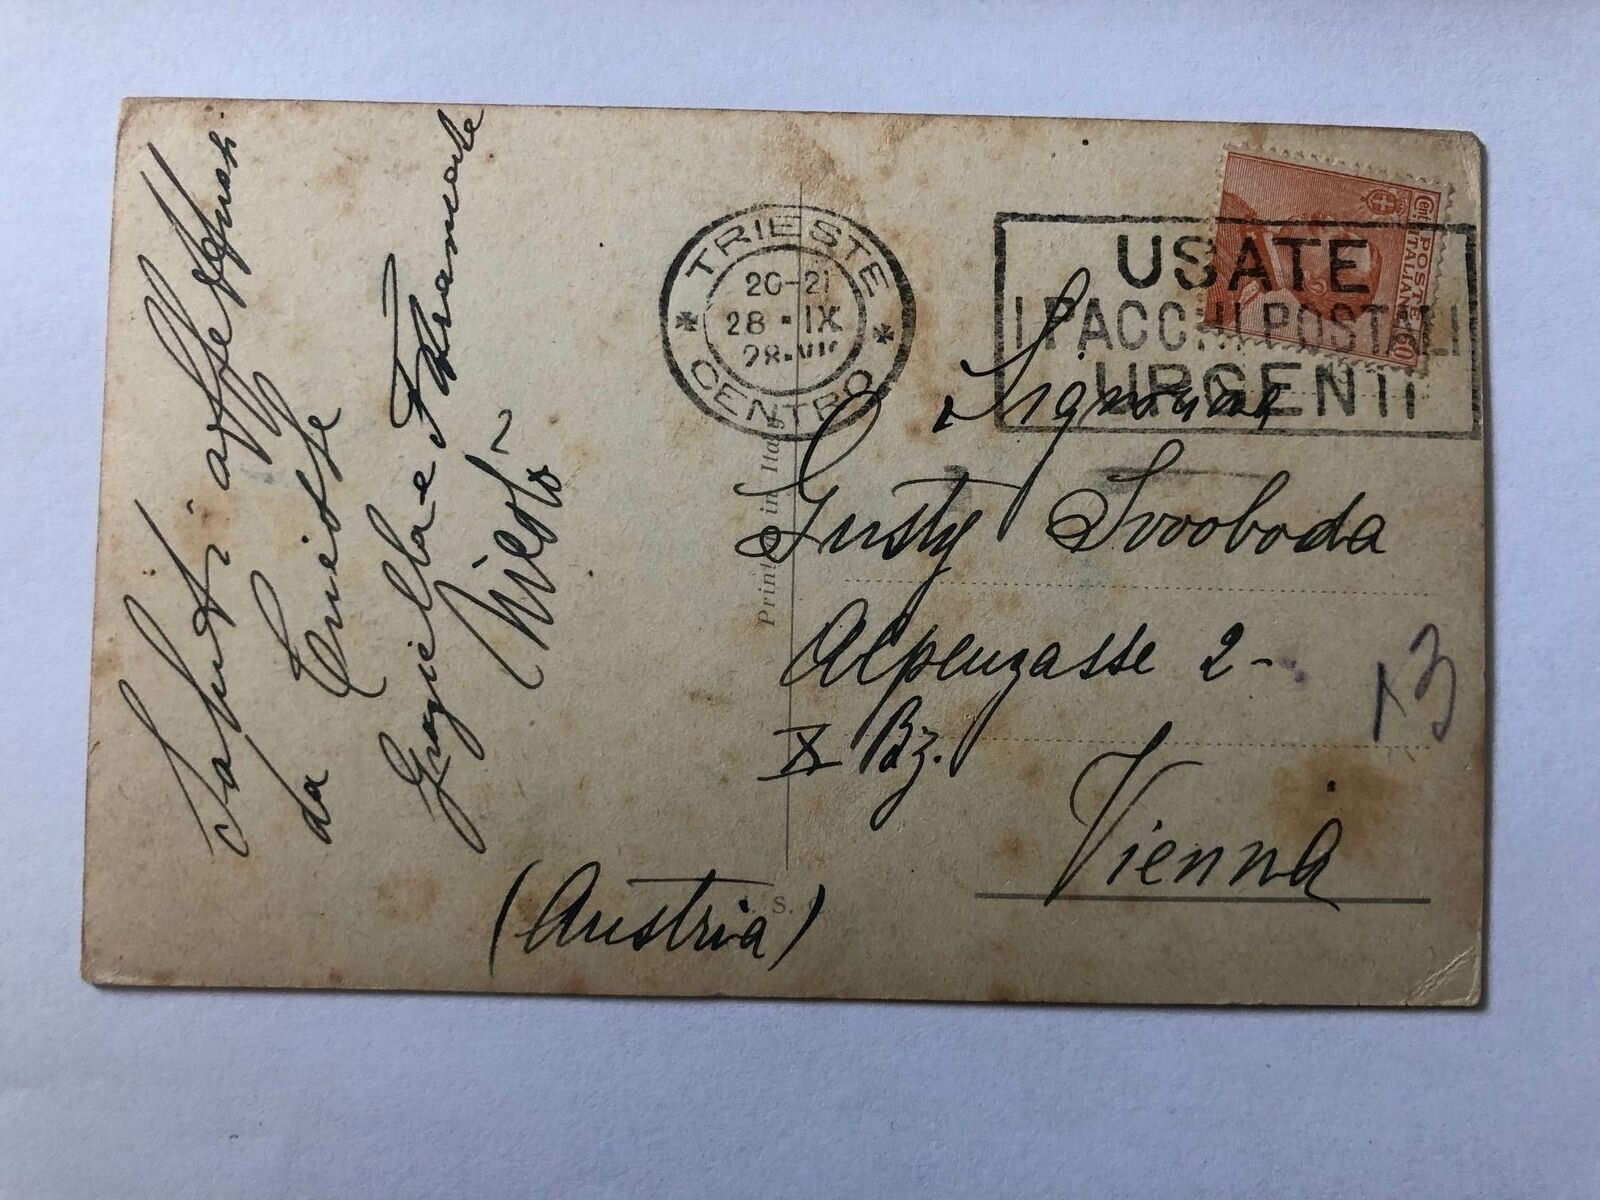 Saluti affettuosi
da Trieste
Graziella e
Nicolò
TRIESTE
20-21
28 · IX
28 · VI
CENTRO
USATE
I PACCHI POSTALI
URGENTI
POSTE
ITALIANE
Cent. 60
Signorina
Gusty Svooboda
Alpengasse 2-
X Bz.
Vienna
(Austria)
13
Printed in Italy
S.